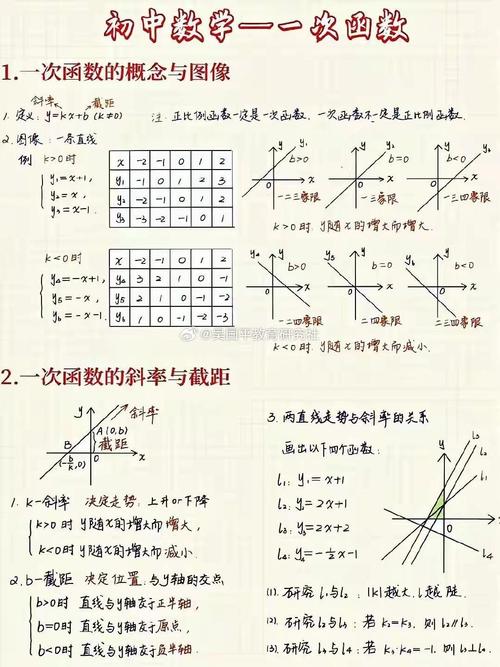 初中数学—一次函数
1.一次函数的概念与图像
斜率 截距
1. 定义: y=kx+b (k≠0) 注: 正比例函数一定是一次函数, 一次函数不一定是正比例函数.
2. 图像: 一条直线
例 k>0时
y₁=x+1,
y₂=x,
y₃=x-1.
x -2 -1 0 1 2
y₁ -1 0 1 2 3
y₂ -2 -1 0 1 2
y₃ -3 -2 -1 0 1
y₁ b>0 x 一二三象限
y b=0 x 一三象限
y b<0 x 一三四象限
k>0时, y随x的增大而增大.
k<0时
y₄=-x+1,
y₅=-x,
y₆=-x-1.
x -2 -1 0 1 2
y₄ 3 2 1 0 -1
y₅ 2 1 0 -1 -2
y₆ 1 0 -1 -2 -3
y₄ y b>0 x 一二四象限
y₅ y b=0 x 二四象限
y₆ y b<0 x 二三四象限
k<0时, y随x的增大而减小.
@吴国平教育研究社
2.一次函数的斜率与截距
y 斜率
A(0,b)
截距
B 0 x
(-b/k,0)
1. k—斜率 决定走势: 上升or下降
k>0时 y随x的增大而增大,
k<0时 y随x的增大而减小.
2. b—截距 决定位置: 与y轴的交点
b>0时 直线与y轴交于正半轴,
b=0时 直线与y轴交于原点,
b<0时 直线与y轴交于负半轴.
3. 两直线走势与斜率的关系
画出以下四个函数:
l₁: y₁=x+1
l₂: y₂=2x+1
l₃: y₃=2x+2
l₄: y₄=-½x-1
y l₃ l₂ l₁
0 x
l₄
(1). 研究l₁与l₂: |k|越大, l越陡.
(2). 研究l₂与l₃: 若k₂=k₃, 则l₂∥l₃.
(3). 研究l₃与l₄: 若k₃·k₄=-1, 则l₃⊥l₄.